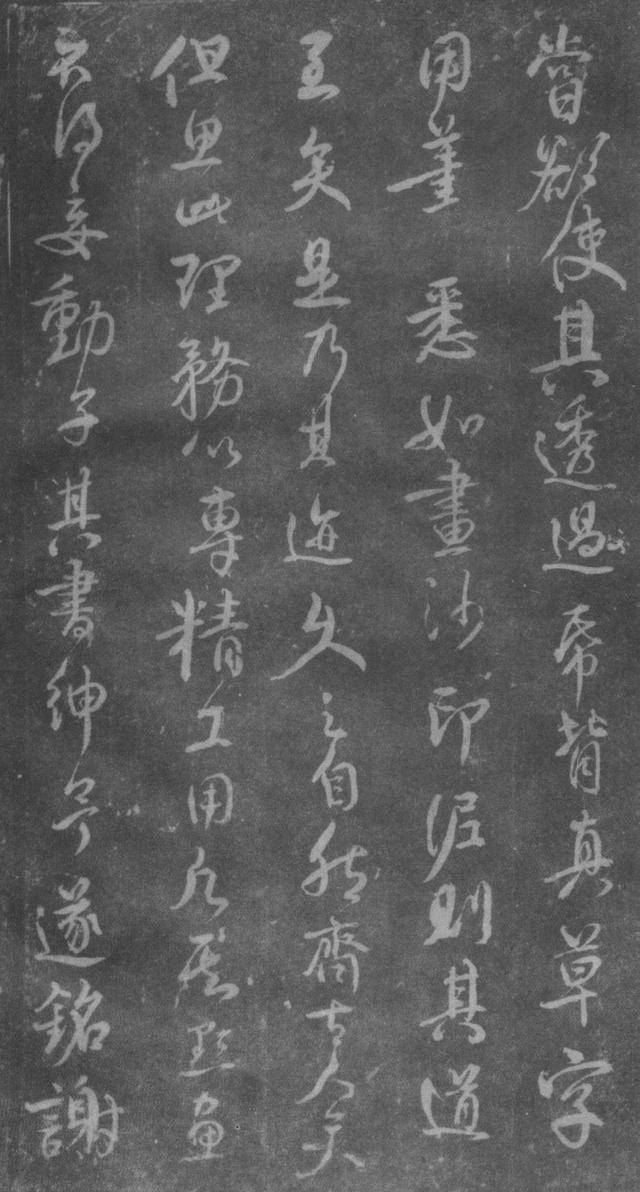 嘗欲使其透過帋背真草字
用筆悉如畫沙印泥則其道
至矣是乃其迹久之自然齊古人矣
但思此理務以專精工用其點畫
不得妄動子其書紳予遂銘謝